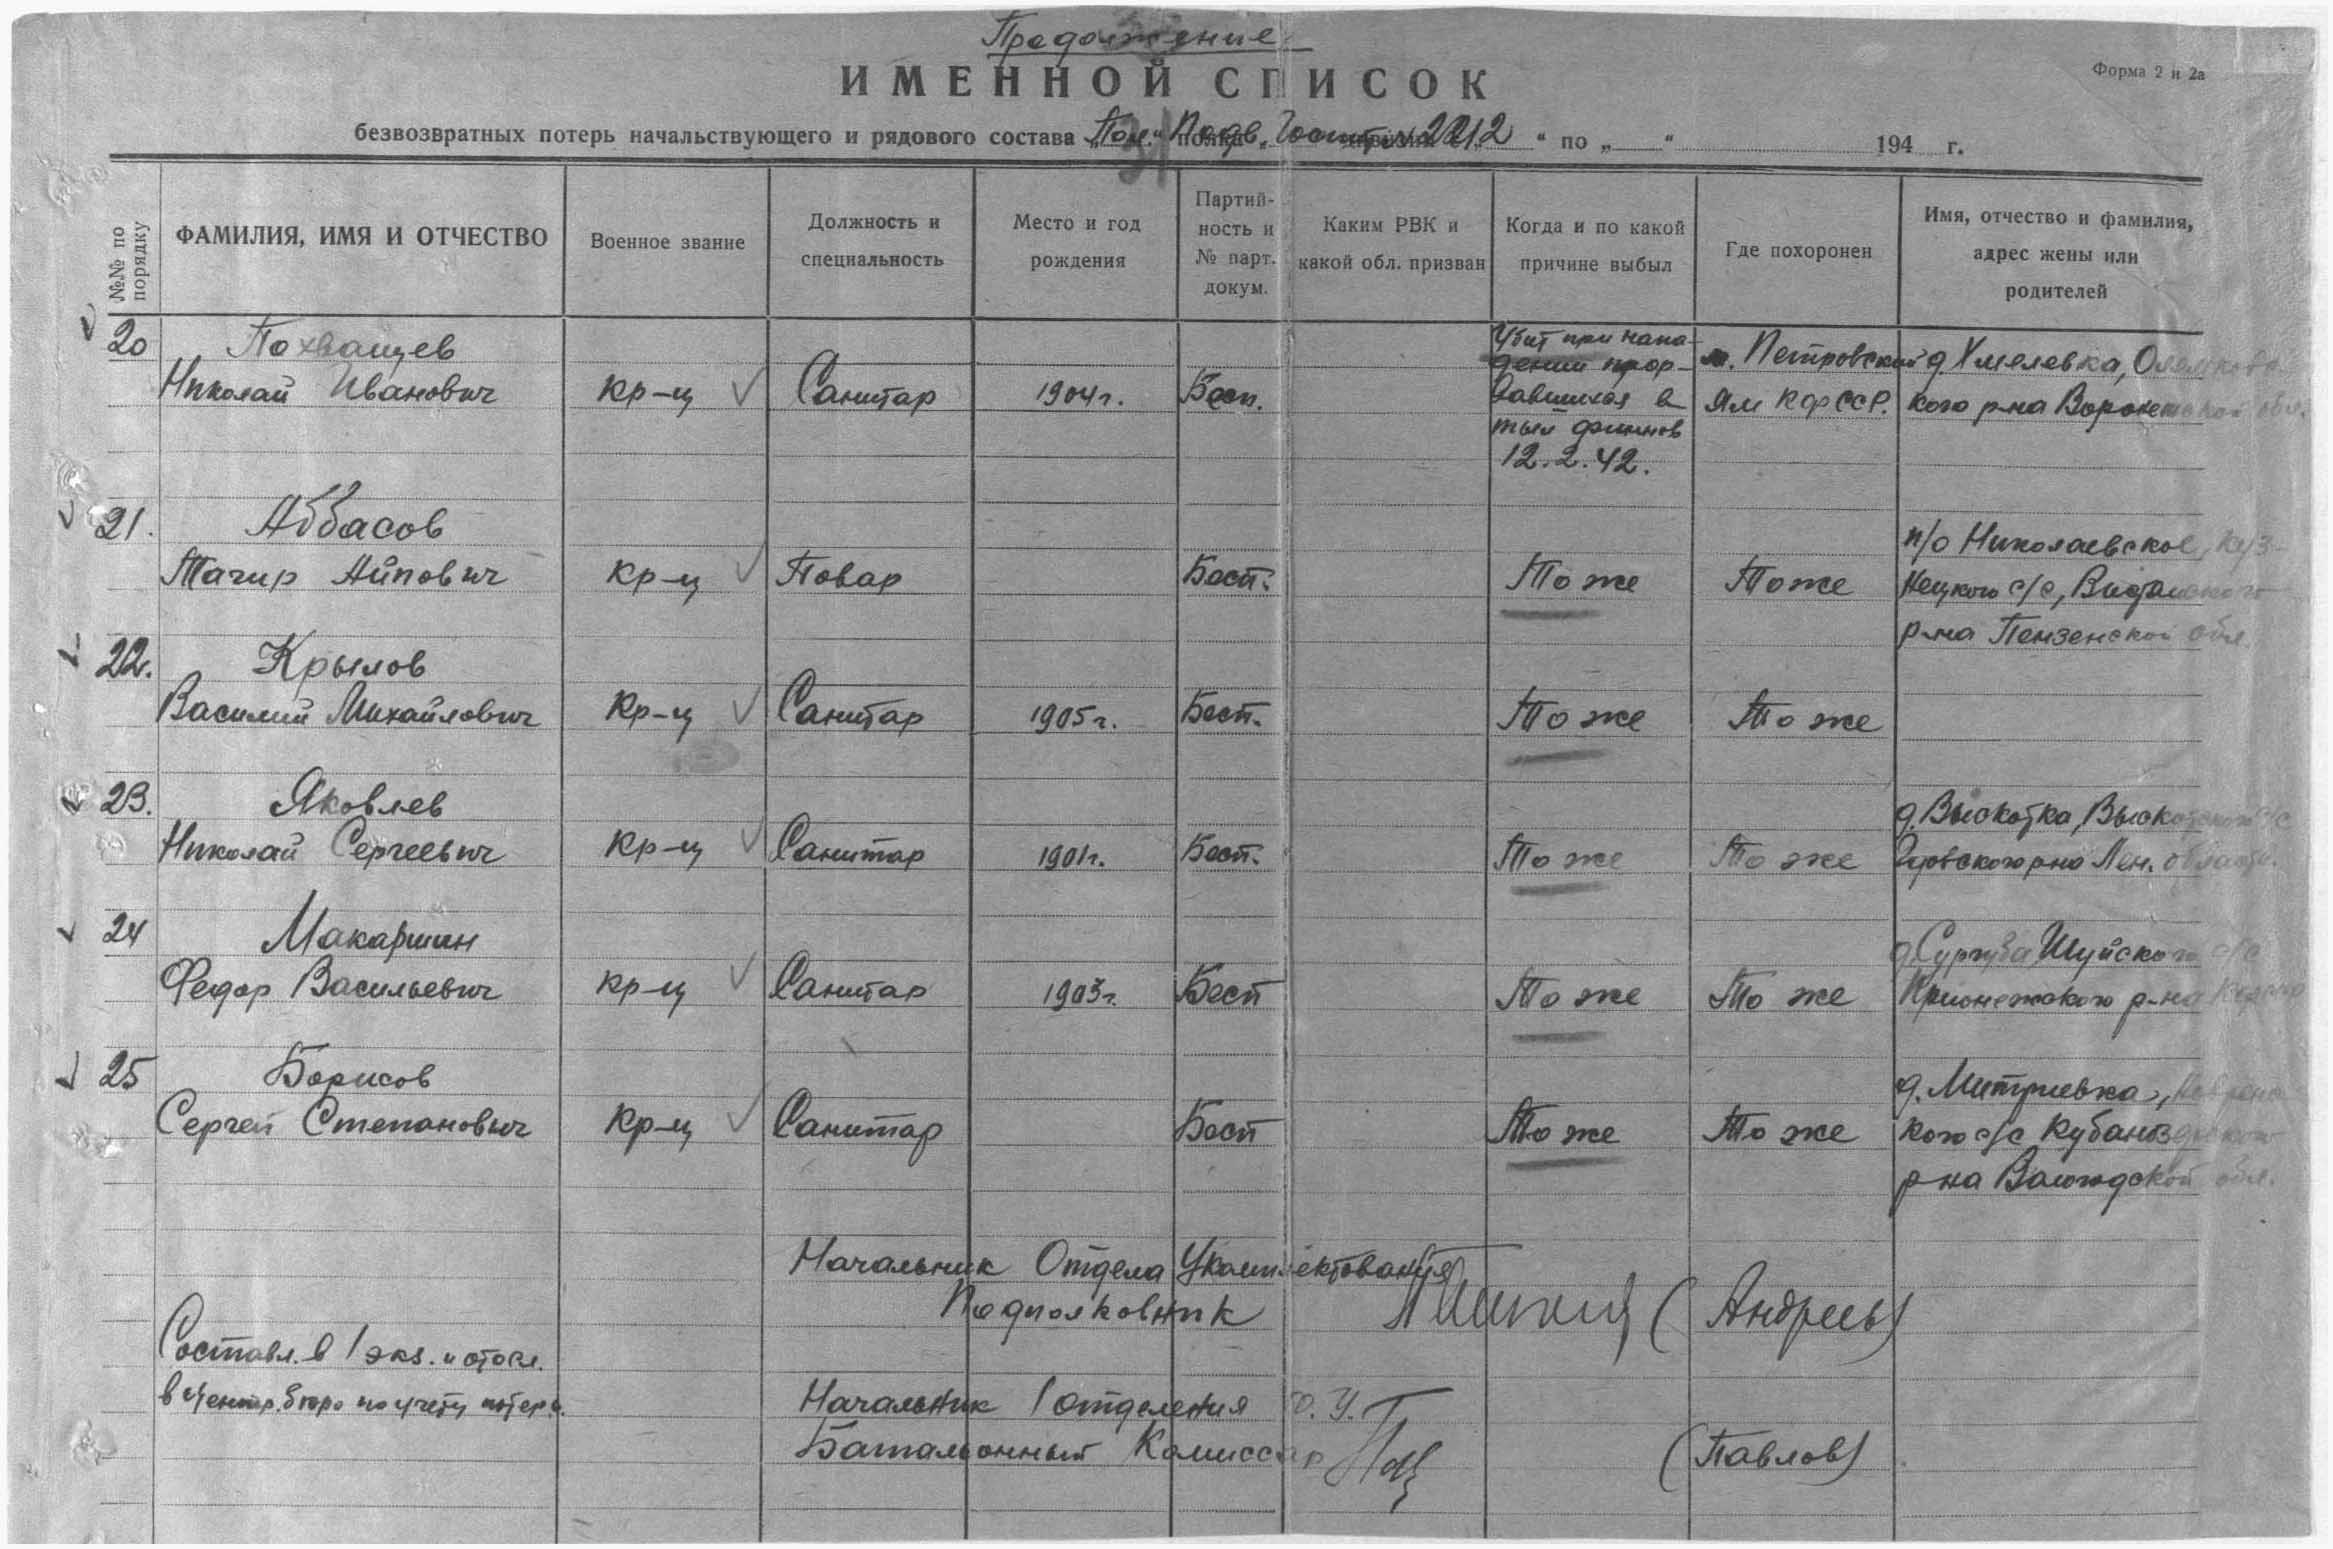 Продолжение
ИМЕННОЙ СПИСОК
Форма 2 и 2а
безвозвратных потерь начальствующего и рядового состава „Пол." Подв. Госпит. № 2212 " по „ " 194 г.
№№ по порядку
ФАМИЛИЯ, ИМЯ И ОТЧЕСТВО
Военное звание
Должность и специальность
Место и год рождения
Партий-ность и № парт. докум.
Каким РВК и какой обл. призван
Когда и по какой причине выбыл
Где похоронен
Имя, отчество и фамилия, адрес жены или родителей
20 Похващев
Николай Иванович кр-ц Санитар 1904 г. Бесп.
Убит при напа-
дении прор-
вавшихся в
тыл финнов
12.2.42.
м. Петровский
Ям КФССР.
д. Хмелевка,
кого р-на Воронежской обл.
21. Аббасов
Тагир Айпович кр-ц Повар Бесп. То же То же
п/о Николаевское, Куз-
нецкого с/с,
р-на Пензенской обл.
22. Крылов
Василий Михайлович кр-ц Санитар 1905 г. Бесп. То же То же
23. Яковлев
Николай Сергеевич кр-ц Санитар 1901 г. Бесп. То же То же
д. Выскотка, Выскотского с/с
р-на Лен. области.
24 Макаршин
Федор Васильевич кр-ц Санитар 1903 г. Бесп То же То же
д. Шуйского с/с
Прионежского р-на
25 Борисов
Сергей Степанович кр-ц Санитар Бесп То же То же
д. Митриевка,
кого с/с
р-на Вологодской обл.
Начальник Отдела Укомплектования
Подполковник (Андреев)
Составл. в 1 экз. и отосл.
в Центр. бюро по учету потерь.
Начальник 1 отделения О.У.
Батальонный Комиссар (Павлов)